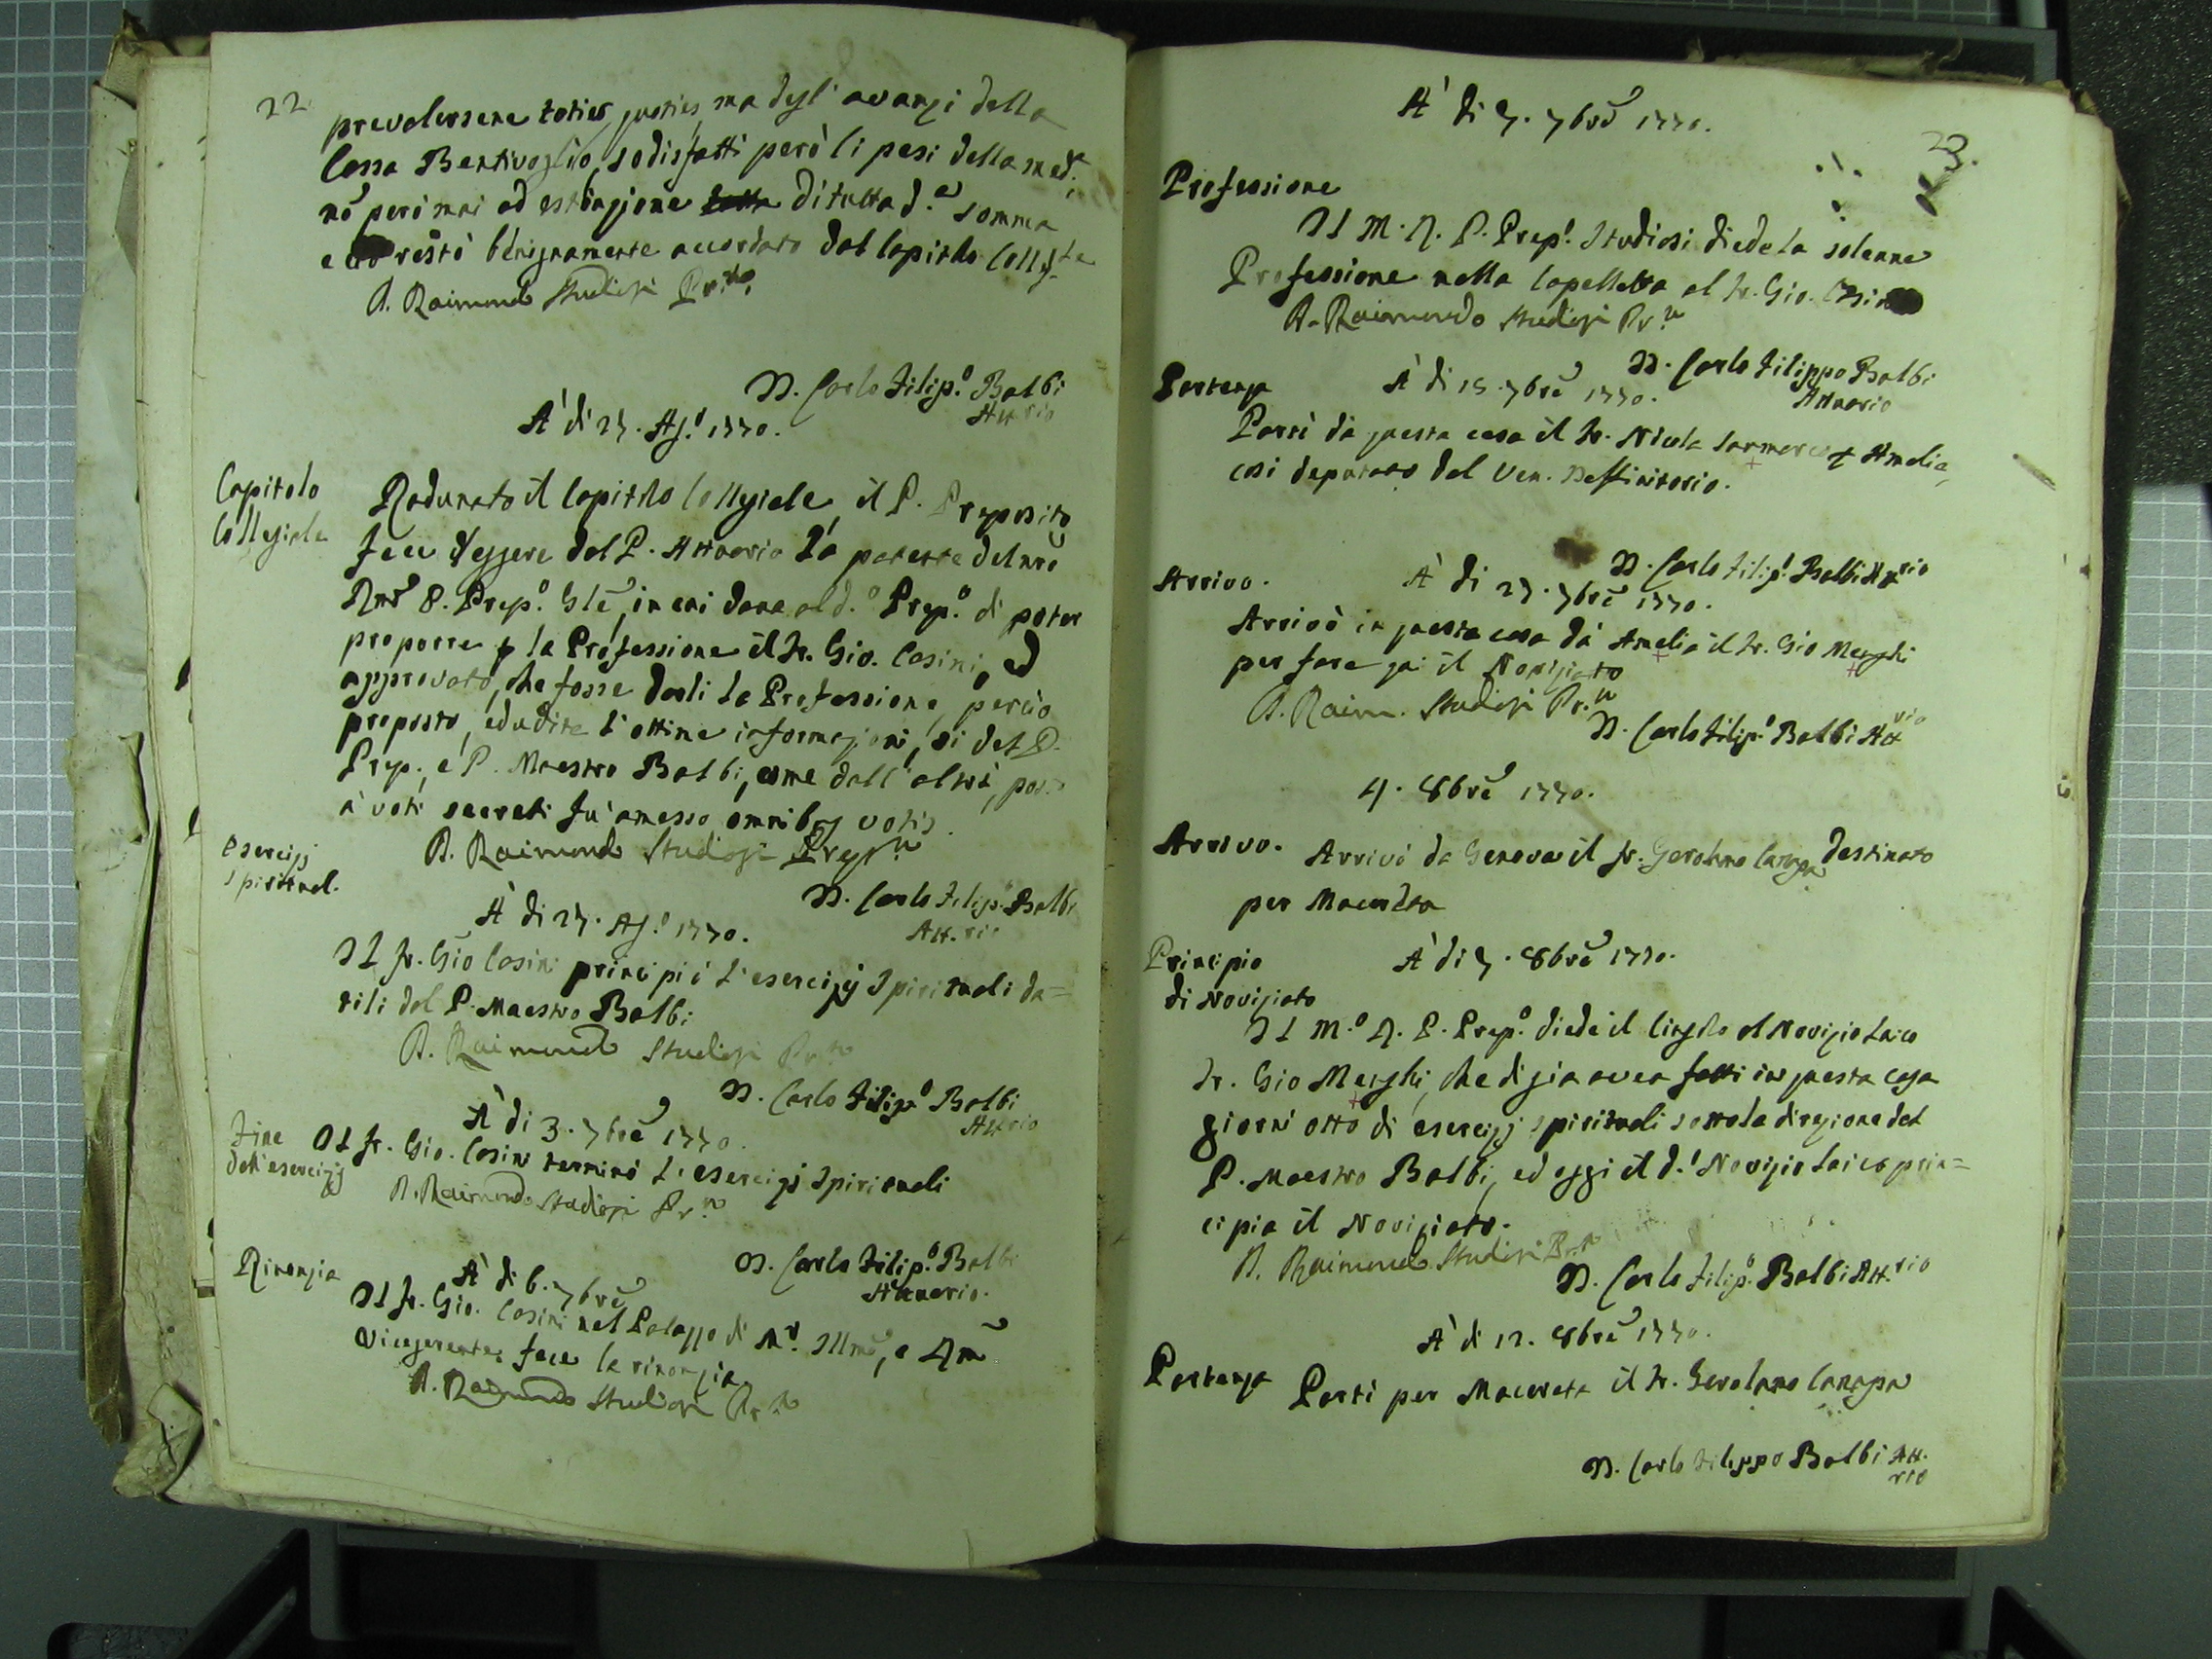 22
prevalersene toties quoties, ma degl' avanzi della
Cassa Bentivoglio, sodisfatti però li pesi della med.a,
nè però mai ad estinzione di tutta d.a somma
e restò benignamente accordato dal Capitolo Colleg.le
D. Raimondo Studiosi Pr.to
D. Carlo Filip.o Balbi
Att.rio
A' di 27. Ag.o 1770.
Capitolo
Collegiale
Radunato il Capitolo Collegiale, il P. Preposito
fece leggere dal P. Attuario la patente del nrõ
Rmõ P. Prep.o Glẽ, in cui dava al d.o Prep.o di poter
proporre p la Professione il Fr. Gio. Casini, ed
approvato, che fosse darli la Professione, perciò
proposto, ed udite l'ottime informazioni, si del P.
Prep., e P. Maestro Balbi, come dall'altri, posto
a' voti secreti fu' amesso omnibus votis.
D. Raimondo Studiosi Prep.to
D. Carlo Filip.o Balbi
Att.rio
Esercizj
Spiritual.
A' di 27. Ag.o 1770.
Il Fr. Gio Casini principiò l'esercizj Spirituali da=
tili dal P. Maestro Balbi
D. Raimondo Studiosi Pr.to
D. Carlo Filip.o Balbi
Att.rio
A' di 3. 7brẽ 1770.
Fine
dell'esercizj
Il Fr. Gio. Casini terminò l'esercizj Spirituali
D. Raimondo Studiosi Pr.to
D. Carlo Filip.o Balbi
Attuario.
Rinonzia
A' di 6. 7brẽ
Il Fr. Gio. Casini nel Palazzo di Mr. Illmõ, e Rmõ
Vicegerente, fece la rinonzia
D. Raimondo Studiosi Pr.to
A' di 7. 7brẽ 1770.
23.
Professione
Il M. R. P. Prep.o Studiosi diede la solenne
Professione nella Capelletta al Fr. Gio. Casini
D. Raimondo Studiosi Pr.to
D. Carlo Filippo Balbi
Attuario
Partenza
A' di 15. 7brẽ 1770.
Partì da questa casa il Fr. Nicola p Amelia,
così deputato dal Ven. Deffinitorio.
D. Carlo Filip.o Balbi Att.rio
Arrivo.
A' di 27. 7brẽ 1770.
Arrivò in questa casa da Amelia il Fr. Gio Menghi
per fare qui il Novizziato
D. Raim. Studiosi Pr.to
D. Carlo Filip.o Balbi Att.rio
4. 8brẽ 1770.
Arrivo.
Arrivò da Genova il Fr. Gerolamo Canepa destinato
per Macerata
Principio
di Noviziato
A' di 7. 8brẽ 1770.
Il M.o R. P. Prep.o diede il Cingolo al Novizio Laico
Fr. Gio Menghi, che di gia avea fatti in questa casa
giorni otto di esercizj spirituali sotto la direzione del
P. Maestro Balbi, ed oggi il d.o Novizio Laico prin=
cipia il Noviziato.
D. Raimondo Studiosi Pr.to
D. Carlo Filip.o Balbi Att.rio
A' di 12. 8brẽ 1770.
Partenza
Partì per Macerata il Fr. Gerolamo Canepa
D. Carlo Filippo Balbi Att.
rio